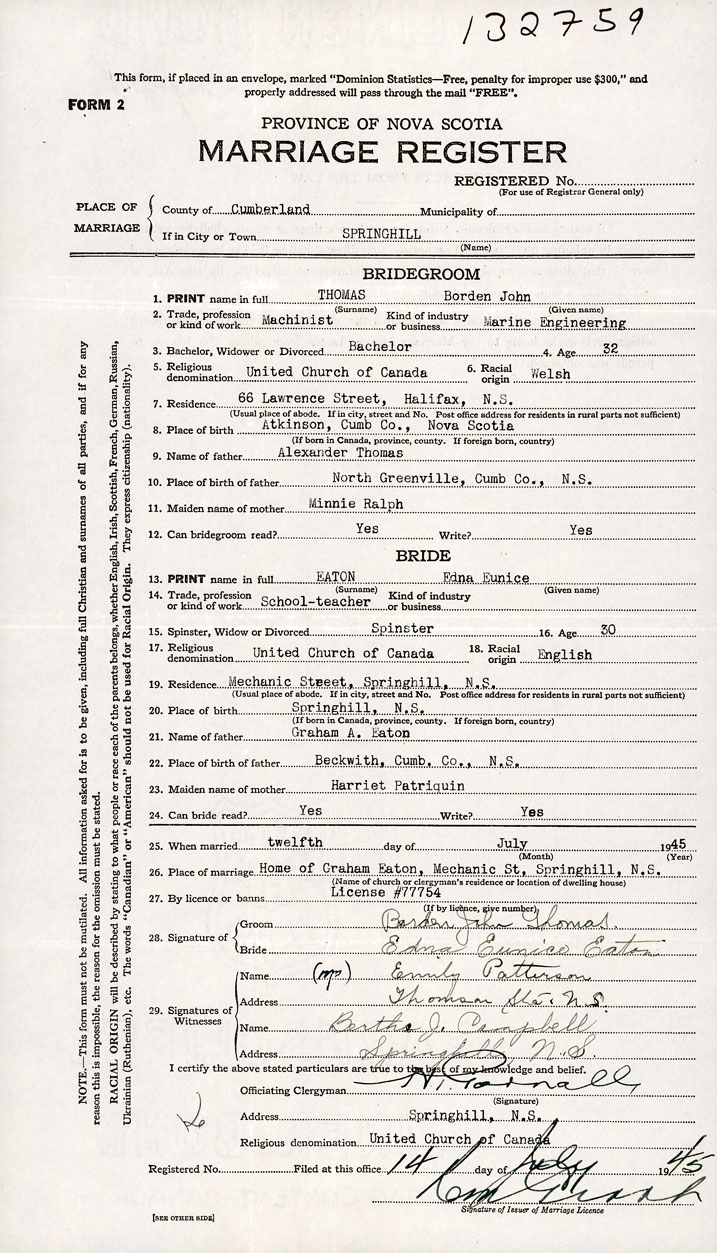 132759
This form, if placed in an envelope, marked "Dominion Statistics—Free, penalty for improper use $300," and
properly addressed will pass through the mail "FREE".
FORM 2
PROVINCE OF NOVA SCOTIA
MARRIAGE REGISTER
REGISTERED No.
(For use of Registrar General only)
PLACE OF MARRIAGE
County of Cumberland Municipality of
If in City or Town SPRINGHILL
(Name)
BRIDEGROOM
1. PRINT name in full THOMAS Borden John
(Surname) (Given name)
2. Trade, profession or kind of work Machinist Kind of industry or business Marine Engineering
3. Bachelor, Widower or Divorced Bachelor 4. Age 32
5. Religious denomination United Church of Canada 6. Racial origin Welsh
7. Residence 66 Lawrence Street, Halifax, N.S.
(Usual place of abode. If in city, street and No. Post office address for residents in rural parts not sufficient)
8. Place of birth Atkinson, Cumb Co., Nova Scotia
(If born in Canada, province, county. If foreign born, country)
9. Name of father Alexander Thomas
10. Place of birth of father North Greenville, Cumb Co., N.S.
11. Maiden name of mother Minnie Ralph
12. Can bridegroom read? Yes Write? Yes
BRIDE
13. PRINT name in full EATON Edna Eunice
(Surname) (Given name)
14. Trade, profession or kind of work School-teacher Kind of industry or business
15. Spinster, Widow or Divorced Spinster 16. Age 30
17. Religious denomination United Church of Canada 18. Racial origin English
19. Residence Mechanic Street, Springhill, N.S.
(Usual place of abode. If in city, street and No. Post office address for residents in rural parts not sufficient)
20. Place of birth Springhill, N.S.
(If born in Canada, province, county. If foreign born, country)
21. Name of father Graham A. Eaton
22. Place of birth of father Beckwith, Cumb. Co., N.S.
23. Maiden name of mother Harriet Patriquin
24. Can bride read? Yes Write? Yes
25. When married twelfth day of July 1945
(Month) (Year)
26. Place of marriage Home of Graham Eaton, Mechanic St, Springhill, N.S.
(Name of church or clergyman's residence or location of dwelling house)
27. By licence or banns License #77754
(If by licence, give number)
28. Signature of
Groom Borden John Thomas.
Bride Edna Eunice Eaton
29. Signatures of Witnesses
Name Emily Patterson
Address Thomson Sta. N.S.
Name Bertha J. Campbell
Address Springhill, N.S.
I certify the above stated particulars are true to the best of my knowledge and belief.
Officiating Clergyman
(Signature)
Address Springhill, N.S.
Religious denomination United Church of Canada
Registered No. Filed at this office 14 day of July 1945
Signature of Issuer of Marriage Licence
[SEE OTHER SIDE]
NOTE.—This form must not be mutilated. All information asked for is to be given, including full Christian and surnames of all parties, and if for any
reason this is impossible, the reason for the omission must be stated.
RACIAL ORIGIN will be described by stating to what people or race each of the parents belongs, whether English, Irish, Scottish, French, German, Russian,
Ukrainian (Ruthenian), etc. The words "Canadian" or "American" should not be used for Racial Origin. They express citizenship (nationality).